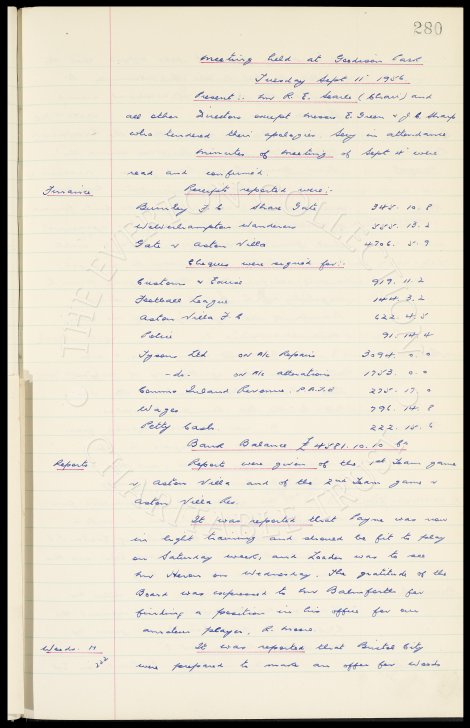 280
Meeting held at Goodison Park
Tuesday Sept 11th 1956
Present:- Mr R. E. Searle (Chair) and
all other Directors except Messrs E. Green & J. C. Sharp
who tendered their apologies Secy in attendance
Minutes of meeting of Sept 4th were
read and confirmed.
Finance Receipts reported were:-
Burnley F C Share Gate 345. 10. 8
Wolverhampton Wanderers 13. 2
Gate v Aston Villa 4706. 5. 9
Cheques were signed for:-
Customs & Excise 919. 11. 2
Football League 144. 3. 2
Aston Villa F C 622. 4. 5
Police 91. 14. 4
Tysons Ltd on A/c Repairs 3094. 0. 0
-do- on A/c alterations 1753. 0. 0
Comms Inland Revenue. P.A.Y.E 275. 17. 0
Wages 796. 14. 8
Petty Cash 222. 15. 6
Bank Balance £4581. 10. 10
Reports Reports were given of the 1st Team game
v. Aston Villa and of the 2nd Team game v
Aston Villa Res.
It was reported that Payne was now
in light training and should be fit to play
on Saturday week, and Loader was to see
Mr Heron on Wednesday. The gratitude of the
Board was expressed to Mr Balmforth for
finding a position in his office for our
amateur player, R. Moore.
Woods. M It was reported that Bristol City
222 were prepared to make an offer for Woods
THE EVERTON COLLECTION
CHARITABLE TRUST